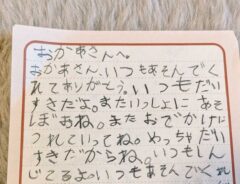 おかあさんへ。
おかあさん、いつもあそんでく
れてありがとう。いつもだい
すきだよ。またいっしょにあそ
ぼおね。またおでかけに
つれていってね。やっちゃだい
すきだからね。いつもしん
じてるよ。いつもあそんでくれ